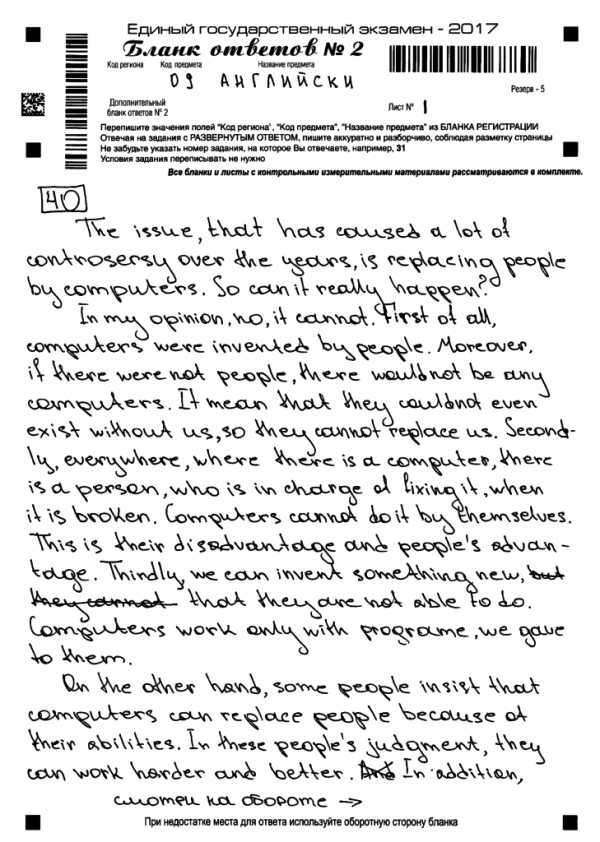 Единый государственный экзамен - 2017
Бланк ответов № 2
Код региона Код предмета Название предмета
09 АНГЛИЙСКИ
Резерв - 5
Дополнительный
бланк ответов № 2
Лист № 1
Перепишите значения полей "Код региона", "Код предмета", "Название предмета" из БЛАНКА РЕГИСТРАЦИИ
Отвечая на задания с РАЗВЕРНУТЫМ ОТВЕТОМ, пишите аккуратно и разборчиво, соблюдая разметку страницы
Не забудьте указать номер задания, на которое Вы отвечаете, например, 31
Условия задания переписывать не нужно
Все бланки и листы с контрольными измерительными материалами рассматриваются в комплекте.
40
The issue, that has caused a lot of
controsersy over the years, is replacing people
by computers. So can it really happen?
In my opinion, no, it cannot. First of all,
computers were invented by people. Moreover,
if there were not people, there would not be any
computers. It mean that they could not even
exist without us, so they cannot replace us. Second-
ly, everywhere, where there is a computer, there
is a person, who is in charge of fixing it, when
it is broken. Computers cannot do it by themselves.
This is their disadvantage and people's advan-
tage. Thindly, we can invent something new, but
they cannot that they are not able to do.
Computers work only with programe, we gave
to them.
On the other hand, some people insist that
computers can replace people because of
their abilities. In these people's judgment, they
can work harder and better. And In addition,
смотри на обороте →
При недостатке места для ответа используйте оборотную сторону бланка